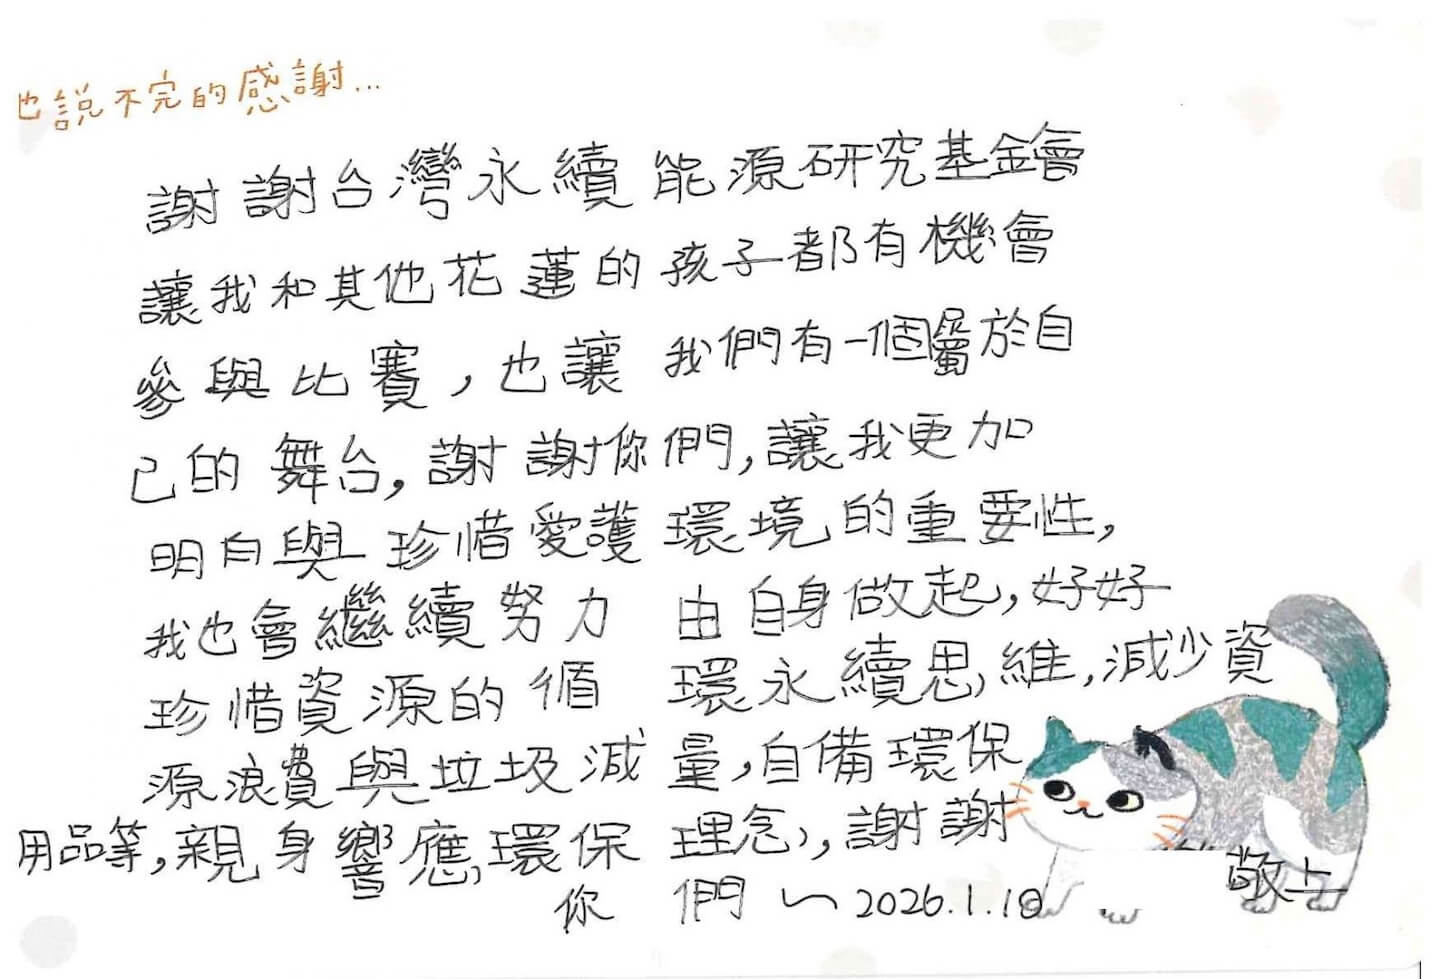 也說不完的感謝...
謝謝台灣永續能源研究基金會
讓我和其他花蓮的孩子都有機會
參與比賽，也讓我們有一個屬於自
己的舞台，謝謝你們，讓我更加
明白與珍惜愛護環境的重要性，
我也會繼續努力由自身做起，好好
珍惜資源的循環永續思維，減少資
源浪費與垃圾減量，自備環保
用品等，親身響應環保理念，謝謝
你們～2026.1.18
敬上